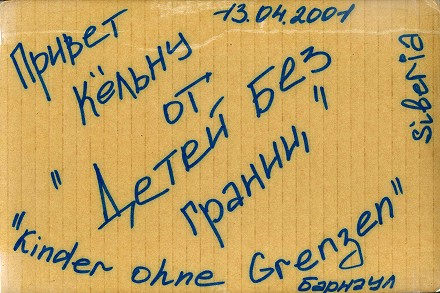 13.04.2001
Привет
Кёльну
от
"Детей Без
границ"
Siberia
"Kinder ohne Grenzen"
Барнаул